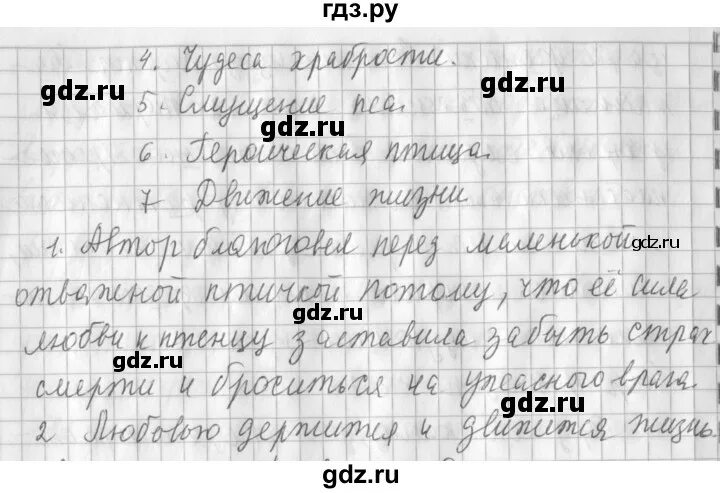 гдз.ру
4. Чудеса храбрости.
gdz.ru
gdz.ru
5. Смущение пса.
gdz.ru
6. Героическая птица.
7 Движение жизни
1. Автор благоговел перед маленькой
gdz.ru
отважной птичкой потому, что её сила
gdz.ru
любви к птенцу заставила забыть страх
gdz.ru
смерти и броситься на ужасного врага.
gdz.ru
2 Любовью держится и движется жизнь.
gdz.ru